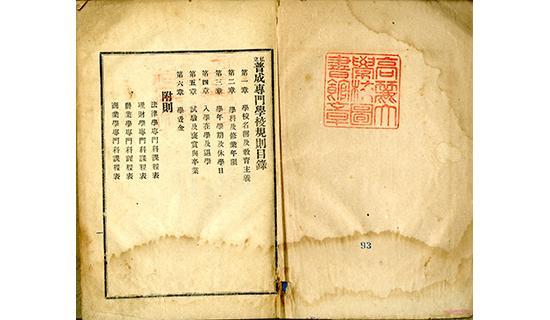 高麗大
學校圖
書館章
93
私立普成專門學校規則目錄
第一章 學校名稱及教育主義
第二章 學科及修業年限
第三章 學年學期及休學日
第四章 入學在學及退學
第五章 試驗及褒賞與卒業
第六章 學資金
附則
法律學專門科課程表
理財學專門科課程表
農業學專門科課程表
商業學專門科課程表